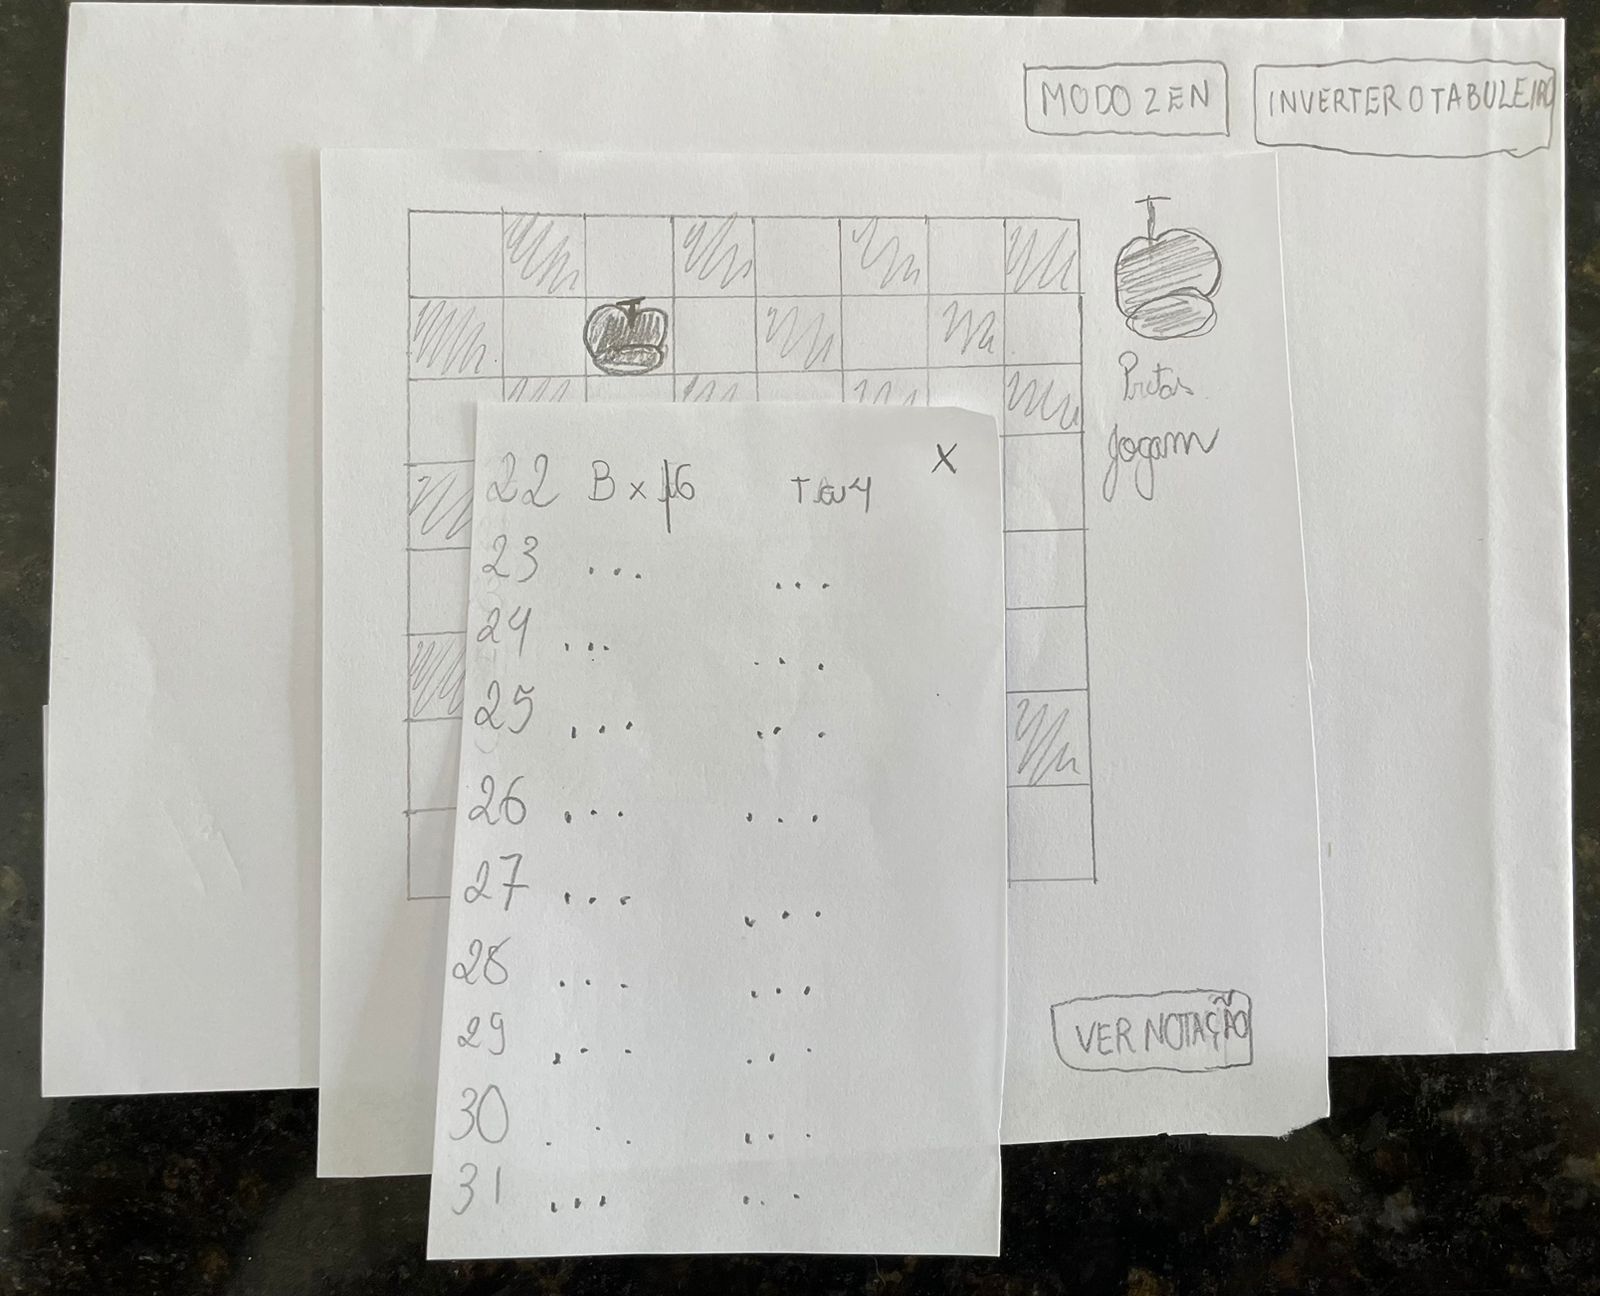 MODO ZEN
INVERTER O TABULEIRO
Pretas
Jogam
X
22 B x
23 ... ...
24 ... ...
25 ... ...
26 ... ...
27 ... ...
28 ... ...
29 ... ...
30 ... ...
31 ... ...
VER NOTAÇÃO